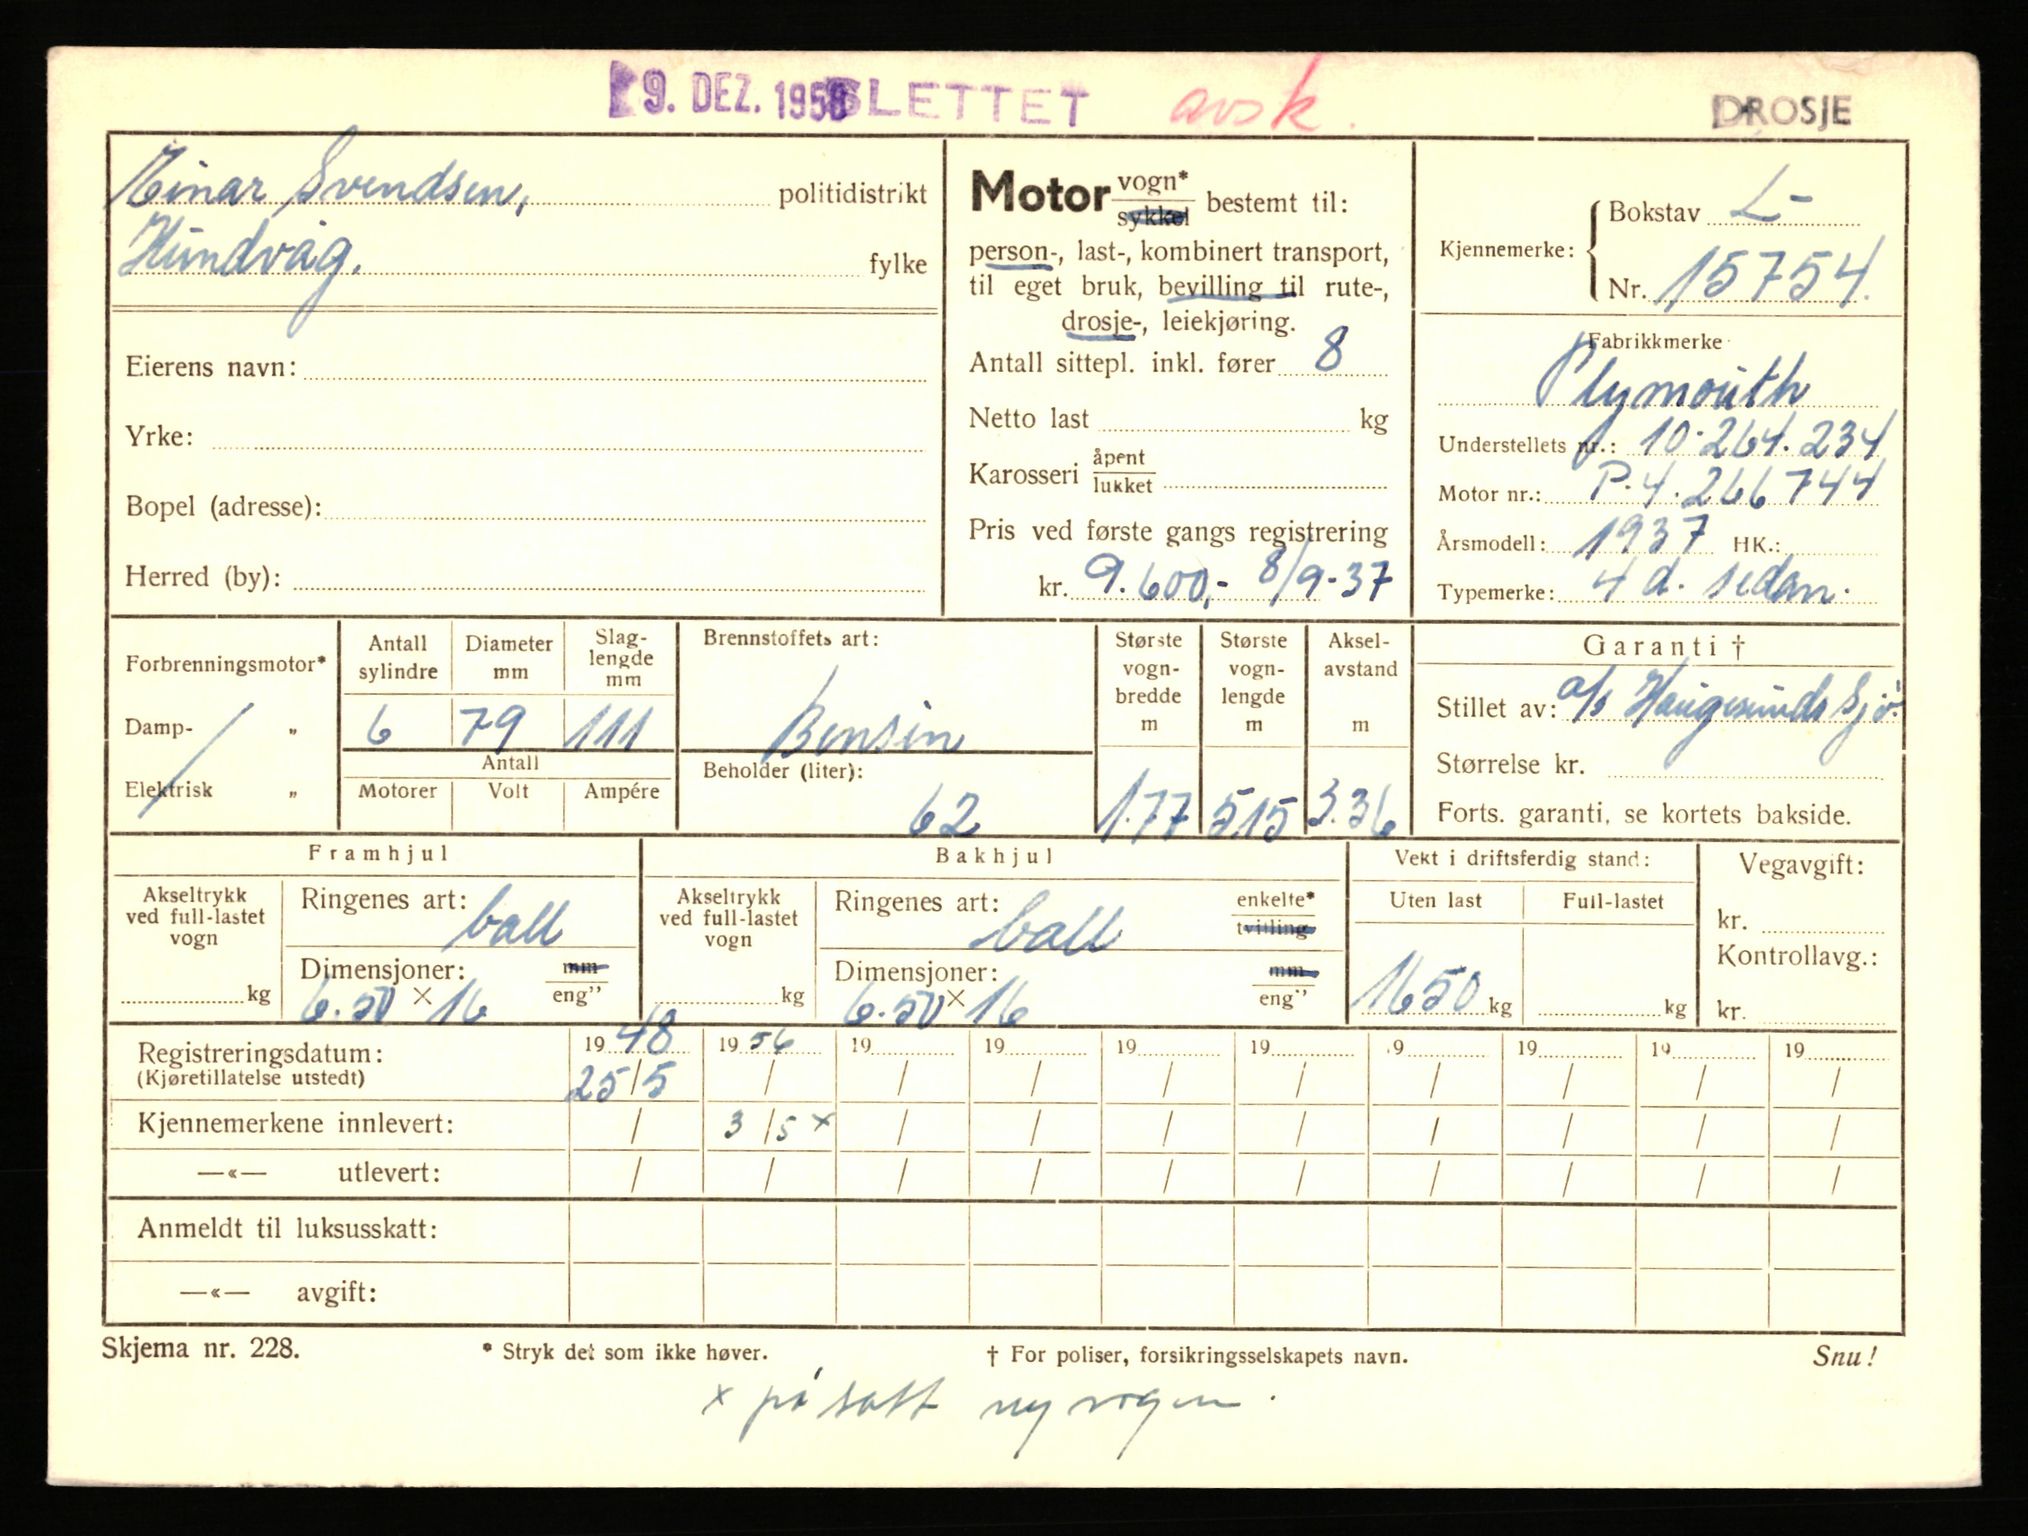 9. DEZ. 1958 SLETTET avsk.
DROSJE
Einar Svendsen, politidistrikt
Hundvåg. fylke
Eierens navn:
Yrke:
Bopel (adresse):
Herred (by):
Motor vogn* sykkel bestemt til:
person-, last-, kombinert transport,
til eget bruk, bevilling til rute-,
drosje-, leiekjøring.
Antall sittepl. inkl. fører 8
Netto last kg
Karosseri åpent lukket
Pris ved første gangs registrering
kr. 9.600,- 8/9-37
Kjennemerke: Bokstav L-
Nr. 15754.
Fabrikkmerke
Plymouth
Understellets nr.: 10.264.234
Motor nr.: P.4.266744
Årsmodell: 1937 HK.:
Typemerke: 4 d. sedan.
Forbrenningsmotor*
Damp- „
Elektrisk „
Antall sylindre Diameter mm Slag-lengde mm
6 79 111
Antall
Motorer Volt Ampére
Brennstoffets art:
Bensin
Beholder (liter):
62
Største vogn-bredde m
1.77
Største vogn-lengde m
5.15
Aksel-avstand m
3.36
Garanti †
Stillet av: a/s Haugesunds Sjø.
Størrelse kr.
Forts. garanti, se kortets bakside.
Framhjul
Akseltrykk ved full-lastet vogn
kg
Ringenes art: ball
Dimensjoner: mm eng"
6.50 × 16
Bakhjul
Akseltrykk ved full-lastet vogn
kg
Ringenes art: ball enkelte* tvilling
Dimensjoner: mm eng"
6.50 × 16
Vekt i driftsferdig stand:
Uten last Full-lastet
1650 kg kg
Vegavgift:
kr.
Kontrollavg.:
kr.
Registreringsdatum: 19 48 19 56 19 19 19 19 19 19 19 19
(Kjøretillatelse utstedt) 25/5 / / / / / / / / /
Kjennemerkene innlevert: / 3/5 x / / / / / / / /
—«— utlevert: / / / / / / / / / /
Anmeldt til luksusskatt:
—«— avgift:
Skjema nr. 228. * Stryk det som ikke høver. † For poliser, forsikringsselskapets navn. Snu!
x påsatt ny vogn.